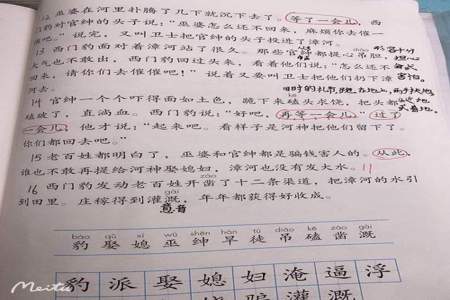 12 巫婆在河里扑腾了几下就沉下去了。等了一会儿，西
门豹对官绅的头子说："巫婆怎么还不回来，麻烦你去催一
催吧。"说完，又叫卫士把官绅的头子投进了漳河。
13 西门豹面对着漳河站了很久。那些官绅都提心吊胆，
大气也不敢出，西门豹回过头来，看着他们说："怎么还不
回来，请你们去催催吧！"说着又要叫卫士把他们扔下漳
河去。
14 官绅一个个吓得面如土色，跪下来磕头求饶，把头都
磕破了，直淌血。西门豹说："好吧，再等一会儿。"过了
一会儿，他才说："起来吧。看样子是河神把他们留下了。
你们都回去吧。"
15 老百姓都明白了，巫婆和官绅都是骗钱害人的。从此，
谁也不敢再提给河神娶媳妇，漳河也没有发大水。
16 西门豹发动老百姓开凿了十二条渠道，把漳河的水引
到田里。庄稼得到灌溉，年年都获得好收成。
gài
意音
bào qǔ xí wū shēn hàn tú diào kē záo gài
豹 娶 媳 巫 绅 旱 徒 吊 磕 凿 溉
豹 派 娶 媳 妇 淹 逼 浮
灌 溉
Meitu